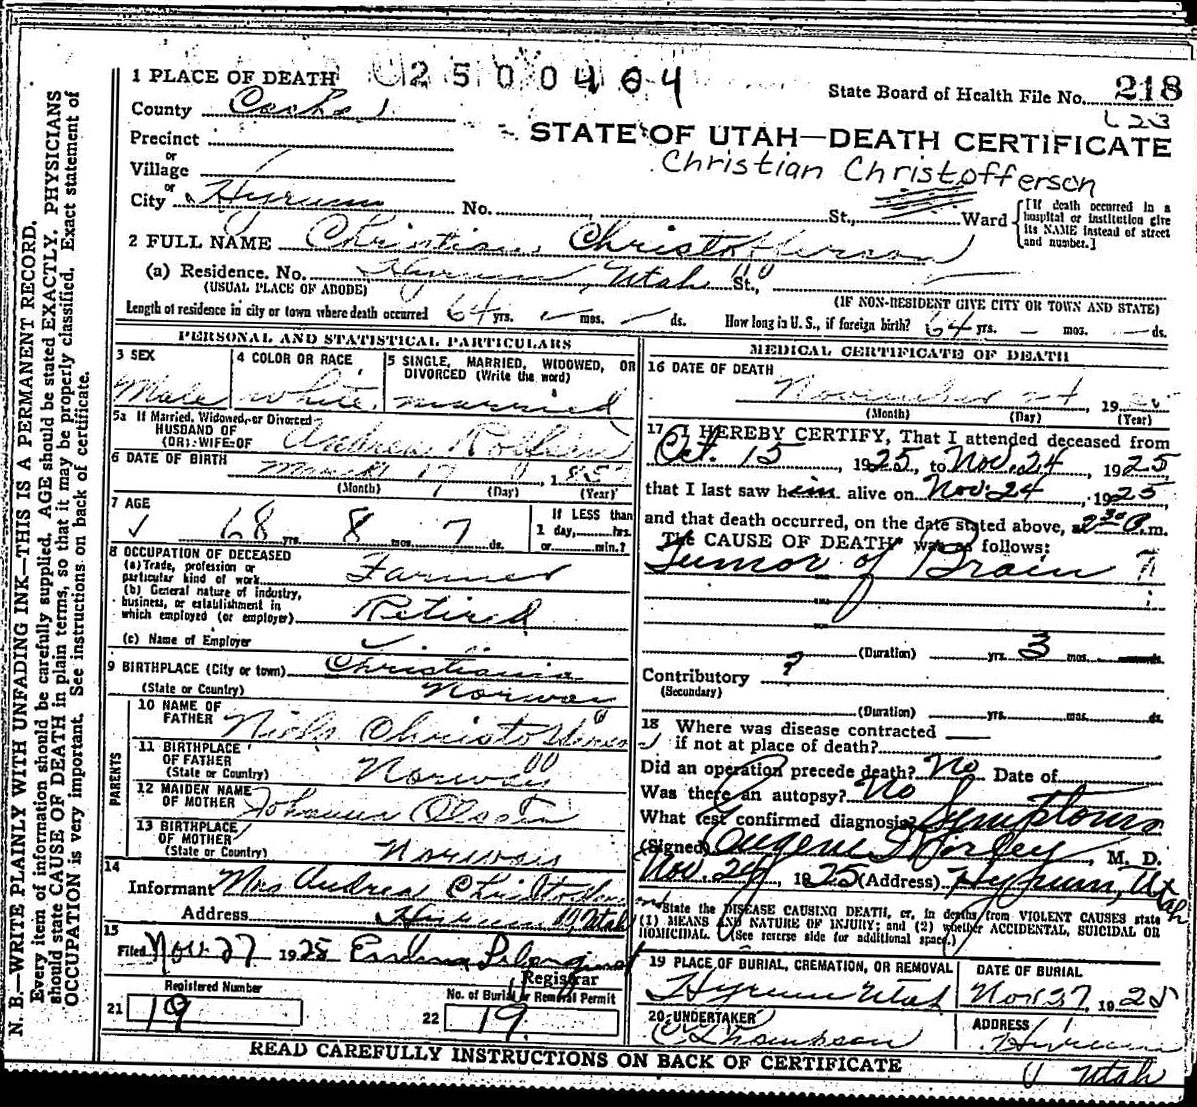 1 PLACE OF DEATH 2500404
State Board of Health File No. 218
County Cache
STATE OF UTAH—DEATH CERTIFICATE
Precinct
or
Village
Christian Christofferson
or
City Hyrum No. St., Ward
[If death occurred in a hospital or institution give its NAME instead of street and number.]
2 FULL NAME Christian Christofferson
(a) Residence. No. Hyrum, Utah St.,
(USUAL PLACE OF ABODE) (IF NON-RESIDENT GIVE CITY OR TOWN AND STATE)
Length of residence in city or town where death occurred 64 yrs. — mos. — ds. How long in U.S., if foreign birth? 64 yrs. — mos. — ds.
PERSONAL AND STATISTICAL PARTICULARS
3 SEX
Male
4 COLOR OR RACE
white
5 SINGLE, MARRIED, WIDOWED, OR DIVORCED (Write the word)
married
5a If Married, Widowed, or Divorced
HUSBAND OF
(OR) WIFE OF Andrea
6 DATE OF BIRTH March 17 1857
(Month) (Day) (Year)
7 AGE
68 yrs. 8 mos. 7 ds.
If LESS than
1 day, hrs.
or min.?
8 OCCUPATION OF DECEASED
(a) Trade, profession or
particular kind of work Farmer
(b) General nature of industry,
business, or establishment in
which employed (or employer) Retired
(c) Name of Employer
9 BIRTHPLACE (City or town) Christiania
(State or Country) Norway
PARENTS
10 NAME OF
FATHER Niels
11 BIRTHPLACE
OF FATHER
(State or Country) Norway
12 MAIDEN NAME
OF MOTHER Johanna Olsen
13 BIRTHPLACE
OF MOTHER
(State or Country) Norway
14
Informant Mrs Andrea Christofferson
Address Hyrum, Utah
15
Filed Nov. 27 1925
Registrar
Registered Number
21 19
No. of Burial or Removal Permit
22 19
MEDICAL CERTIFICATE OF DEATH
16 DATE OF DEATH
November 24, 1925
(Month) (Day) (Year)
17 I HEREBY CERTIFY, That I attended deceased from
Oct. 15, 1925, to Nov. 24, 1925
that I last saw him alive on Nov. 24, 1925,
and that death occurred, on the date stated above, a 2 30 P.m.
The CAUSE OF DEATH was as follows:
Tumor of Brain ?
(Duration) yrs. 3 mos.
Contributory ?
(Secondary)
(Duration) yrs. mos. ds.
18 Where was disease contracted
if not at place of death?
Did an operation precede death? No Date of
Was there an autopsy? No
What test confirmed diagnosis? Symptoms
(Signed) Eugene Worley, M. D.
Nov. 24, 1925 (Address) Hyrum, Utah
State the DISEASE CAUSING DEATH, or, in deaths from VIOLENT CAUSES state
(1) MEANS AND NATURE OF INJURY; and (2) whether ACCIDENTAL, SUICIDAL OR
HOMICIDAL. (See reverse side for additional space.)
19 PLACE OF BURIAL, CREMATION, OR REMOVAL
Hyrum Utah
DATE OF BURIAL
Nov. 27, 1925
20 UNDERTAKER
Thompson
ADDRESS
Hyrum
Utah
READ CAREFULLY INSTRUCTIONS ON BACK OF CERTIFICATE
N. B.—WRITE PLAINLY WITH UNFADING INK—THIS IS A PERMANENT RECORD.
Every item of information should be carefully supplied. AGE should be stated EXACTLY. PHYSICIANS
should state CAUSE OF DEATH in plain terms, so that it may be properly classified. Exact statement of
OCCUPATION is very important. See instructions on back of certificate.